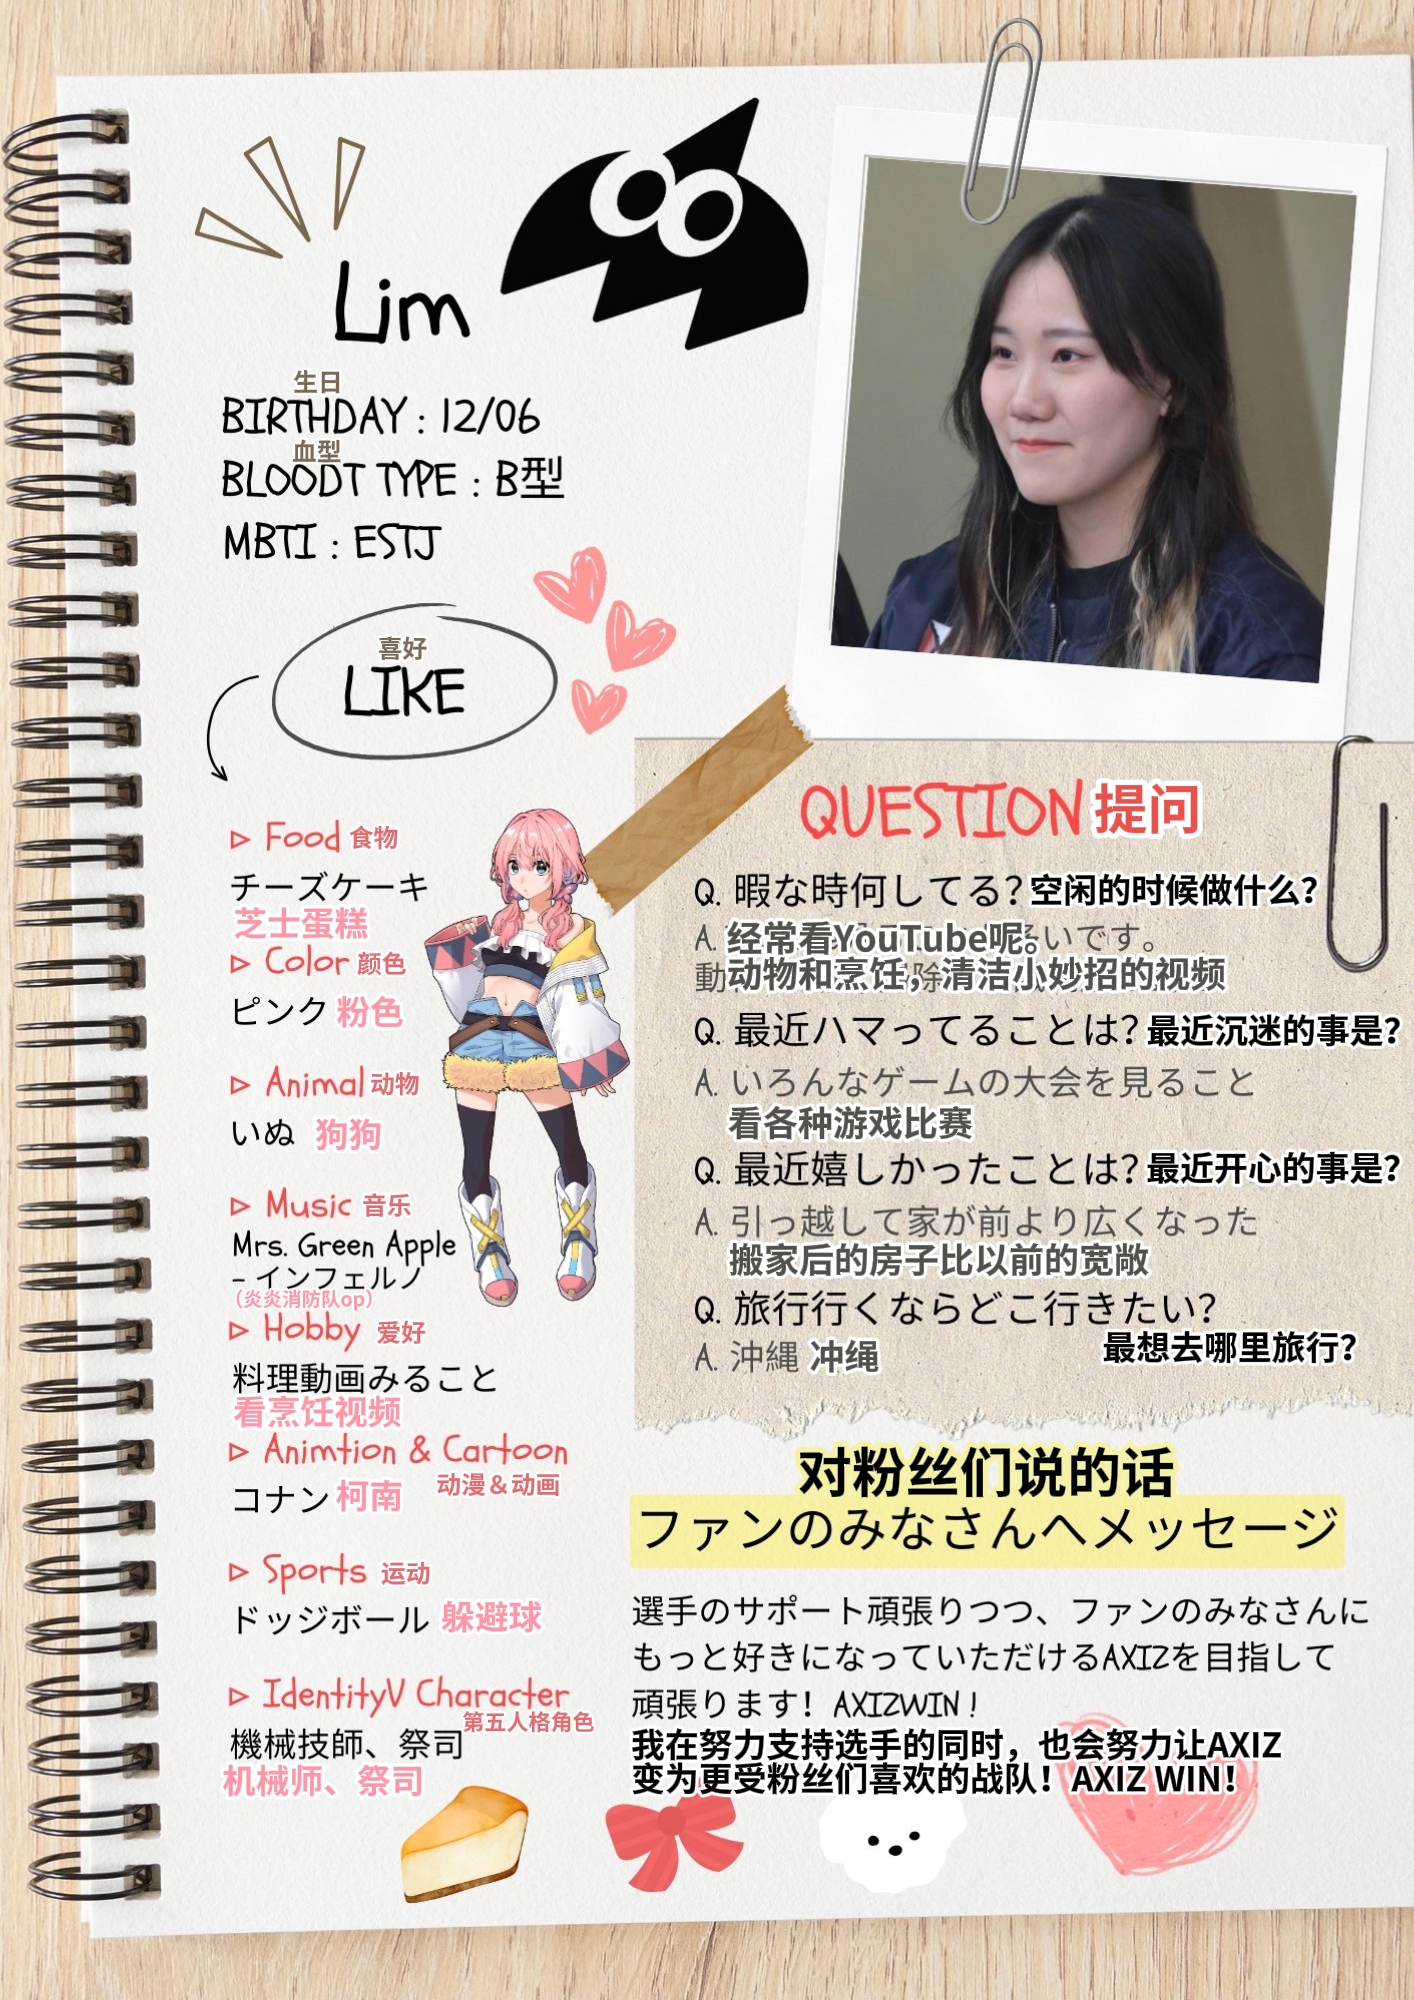 Lim
生日
BIRTHDAY : 12/06
血型
BLOODT TYPE : B型
MBTI : ESTJ
喜好
LIKE
▷ Food 食物
チーズケーキ
芝士蛋糕
▷ Color 颜色
ピンク 粉色
▷ Animal 动物
いぬ 狗狗
▷ Music 音乐
Mrs. Green Apple
- インフェルノ
（炎炎消防队op）
▷ Hobby 爱好
料理動画みること
看烹饪视频
▷ Animtion & Cartoon
动漫＆动画
コナン 柯南
▷ Sports 运动
ドッジボール 躲避球
▷ IdentityV Character
第五人格角色
機械技師、祭司
机械师、祭司
QUESTION 提问
Q. 暇な時何してる？ 空闲的时候做什么？
A. 经常看YouTube呢。いです。
動 动物和烹饪，除 清洁小妙招的视频
Q. 最近ハマってることは？ 最近沉迷的事是？
A. いろんなゲームの大会を見ること
看各种游戏比赛
Q. 最近嬉しかったことは？ 最近开心的事是？
A. 引っ越して家が前より広くなった
搬家后的房子比以前的宽敞
Q. 旅行行くならどこ行きたい？
最想去哪里旅行？
A. 沖縄 冲绳
对粉丝们说的话
ファンのみなさんへメッセージ
選手のサポート頑張りつつ、ファンのみなさんに
もっと好きになっていただけるAXIZを目指して
頑張ります！AXIZWIN！
我在努力支持选手的同时，也会努力让AXIZ
变为更受粉丝们喜欢的战队！AXIZ WIN！